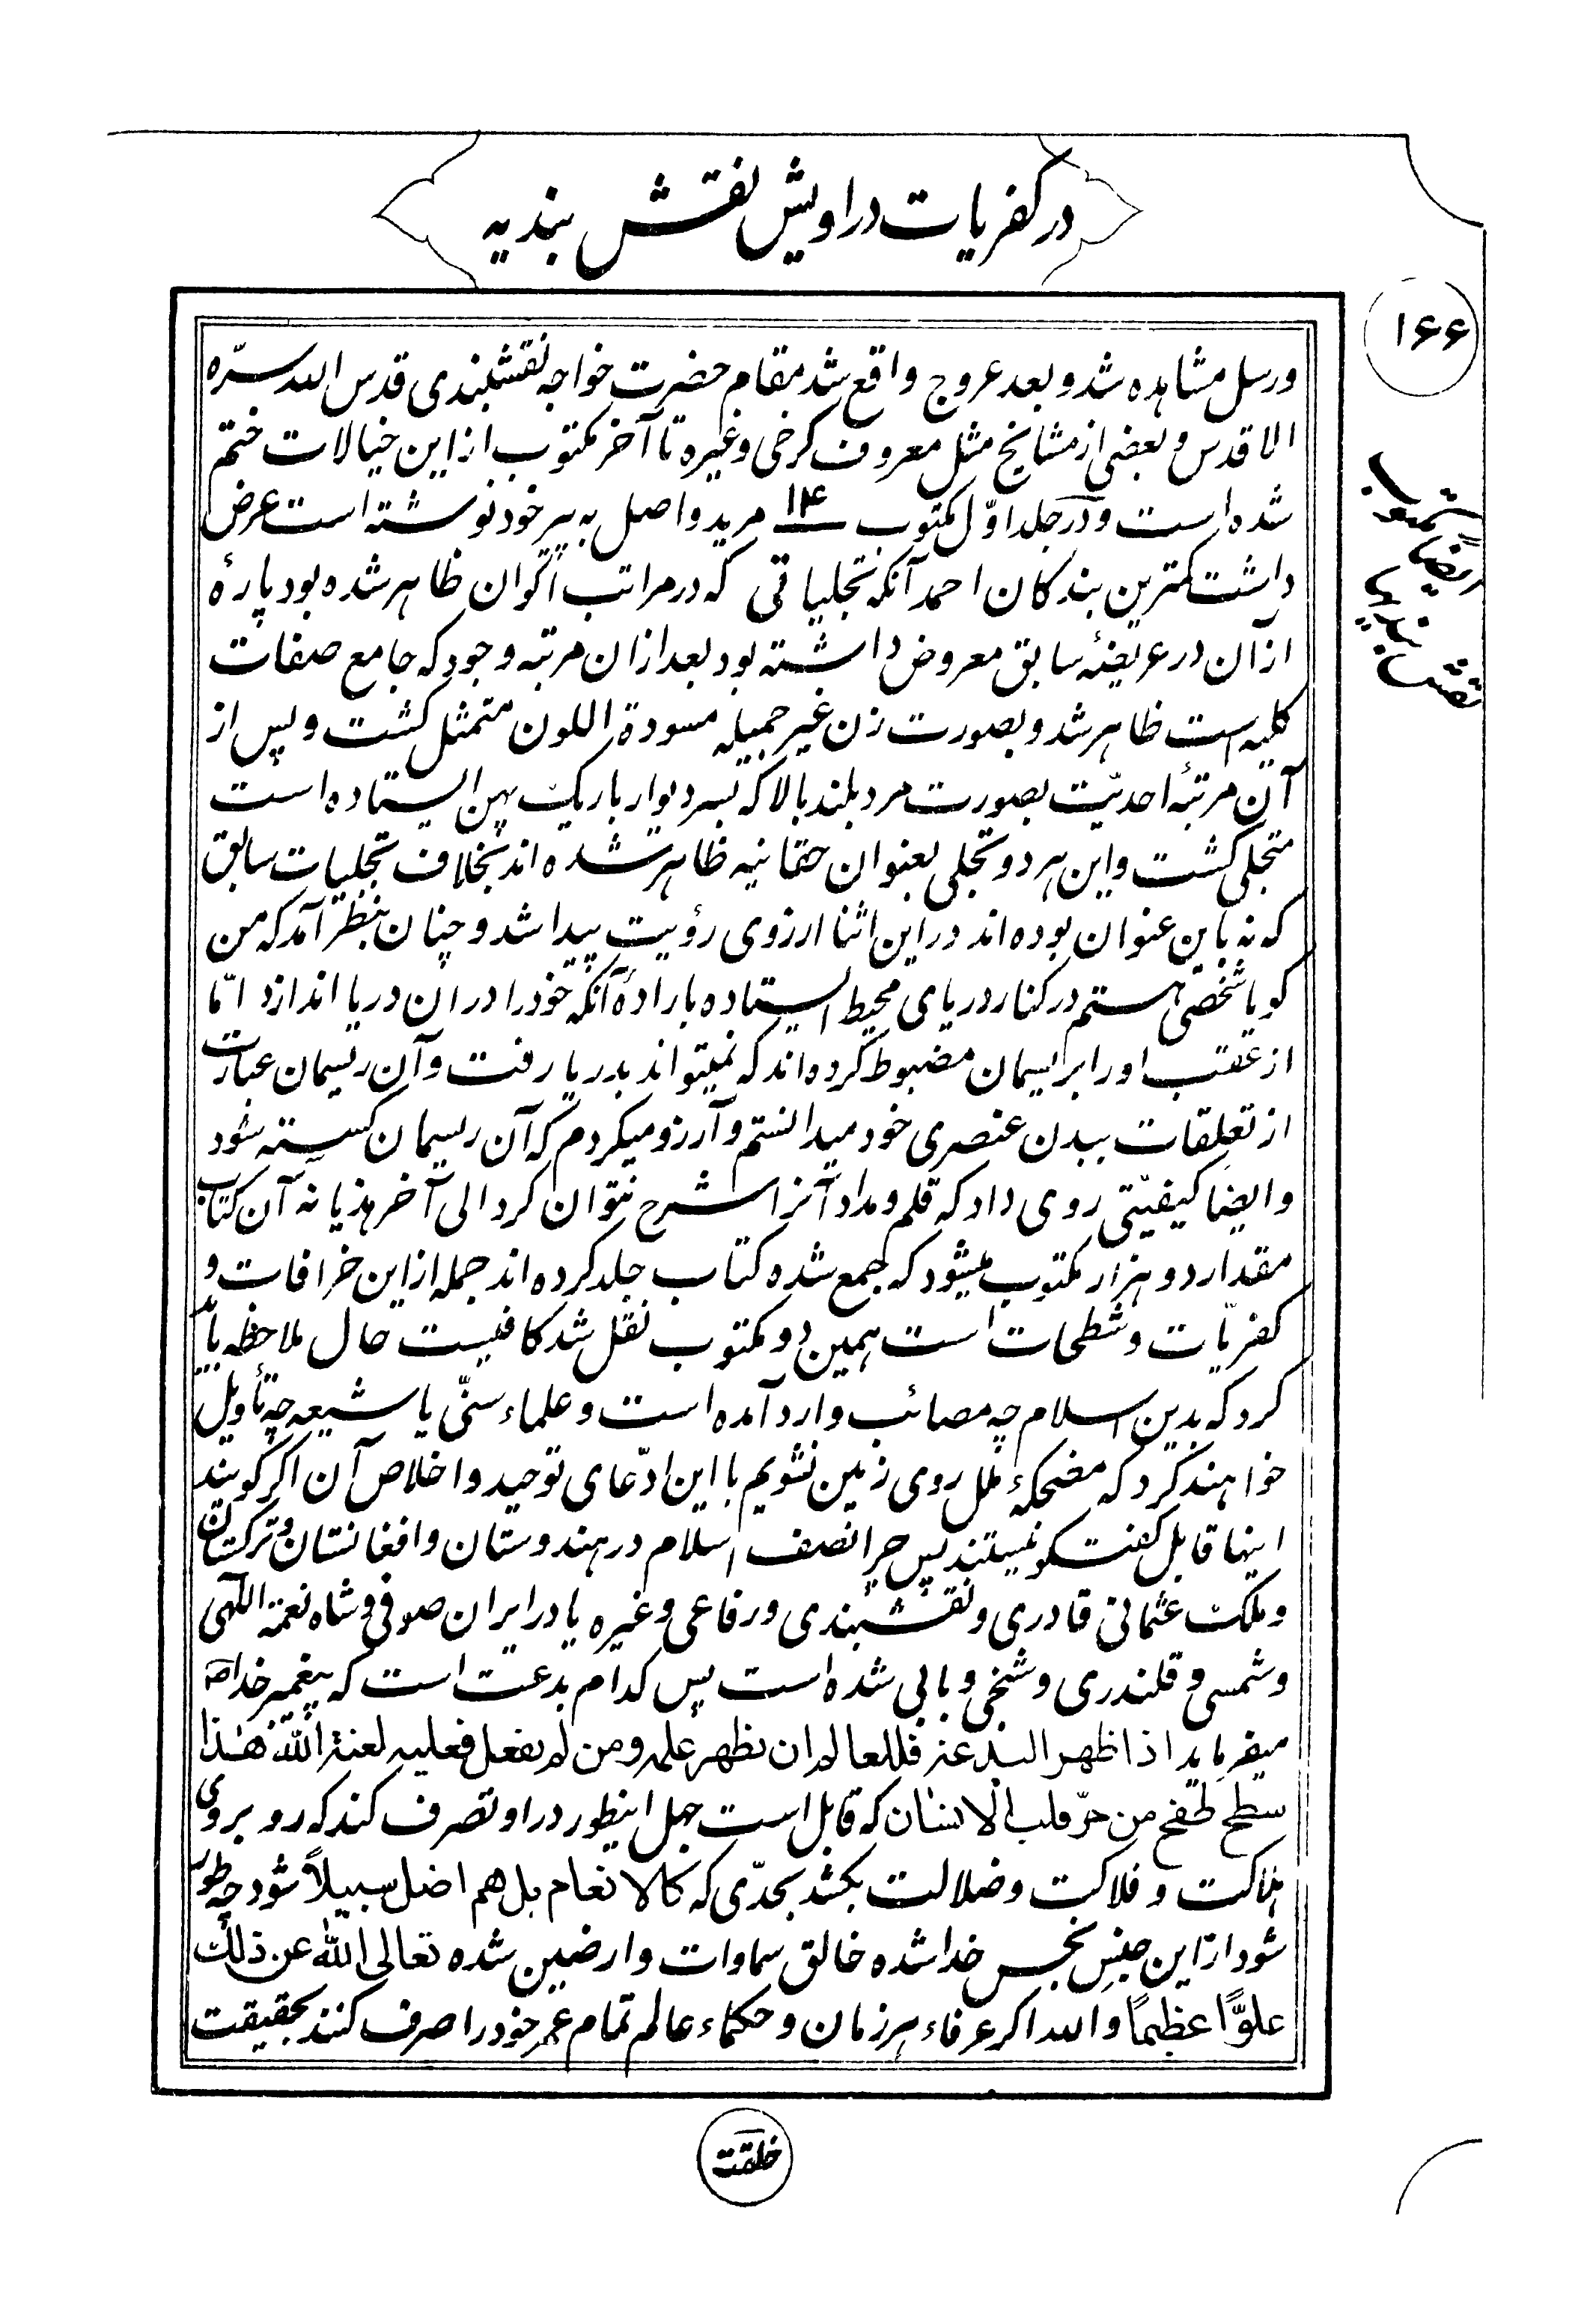 در کفریات دراویش نقش بندیه
۱۶۶
ایضا مکتوب
نقشبندیها
ورسل مشاهده شد و بعد عروج واقع شد مقام حضرت خواجه نقشبندی قدس الله سرّه
الاقدس و بعضی از مشایخ مثل معروف کرخی وغیره تا آخر مکتوب از این خیالات ختم
شده است و در جلد اوّل مکتوب ۱۴ مرید واصل به پیر خود نوشته است عرض
داشت کمترین بندکان احمد آنکه تجلیاتی که در مراتب اکوان ظاهر شده بود پارۀ
از آن در عریضۀ سابق معروض داشته بود بعد ازان مرتبه وجود که جامع صفات
کلیه است ظاهر شد و بصورت زن غیر جمیله مسودة اللون متمثل کشت و پس از
آن مرتبۀ احدیّت بصورت مرد بلند بالا که بسر دیوار باریک پهن ایستاده است
متجلی کشت و این هر دو تجلی بعنوان حقانیه ظاهر شده اند بخلاف تجلیات سابق
که نه باین عنوان بوده اند در این اثنا ارزوی رؤیت پیدا شد و چنان بنظر آمد که من
کویا شخصی هستم در کنار دریای محیط ایستاده بارادۀ آنکه خود را در ان دریا اندازد امّا
از عقب او را بریسمان مضبوط کرده اند که نمیتواند بدریا رفت و آن ریسمان عبارت
از تعلقات ببدن عنصری خود میدانستم و آرزو میکردم که آن ریسمان کسسته شود
و ایضا کیفیّتی روی داد که قلم و مداد آنرا شرح نتوان کرد الی آخر هذیانه آن کتاب
مقدار دو هزار مکتوب میشود که جمع شده کتاب جلد کرده اند جمله از این خرافات و
کفریّات و شطحات است همین دو مکتوب نقل شد کافیست حال ملاحظه باید
کرد که بدین اسلام چه مصائب وارد آمده است و علماء سنّی یا شیعه چه تأویل
خواهند کرد که مضحکۀ ملل روی زمین نشویم با این ادّعای توحید و اخلاص آن اکر کویند
اینها قابل کفتکو نیستند پس چرا نصف اسلام در هندوستان و افغانستان و ترکستان
و ملک عثمانی قادری و نقشبندی و رفاعی و غیره یا در ایران صوفی و شاه نعمة اللّهی
و شمسی و قلندری و شیخی و بابی شده است پس کدام بدعت است که پیغمبر خدا ص
میفرماید اذا ظهر البدعة فللعالم ان یظهر علمه و من لم یفعل فعلیه لعنة اللّه هذا
سطح طفح من حرّ قلب الانسان که قابل است جهل اینطور در او تصرف کند که رو بروی
هلاکت و فلاکت و ضلالت بکشد بحدّی که کالانعام بل هم اضل سبیلاً شود چه طور
شود از این جنس نجس خدا شده خالق سماوات و ارضین شده تعالی اللّه عن ذلک
علوًّا عظیمًا والله اکر عرفاء هر زمان و حکماء عالم تمام عمر خود را صرف کنند بحقیقت
خلقت